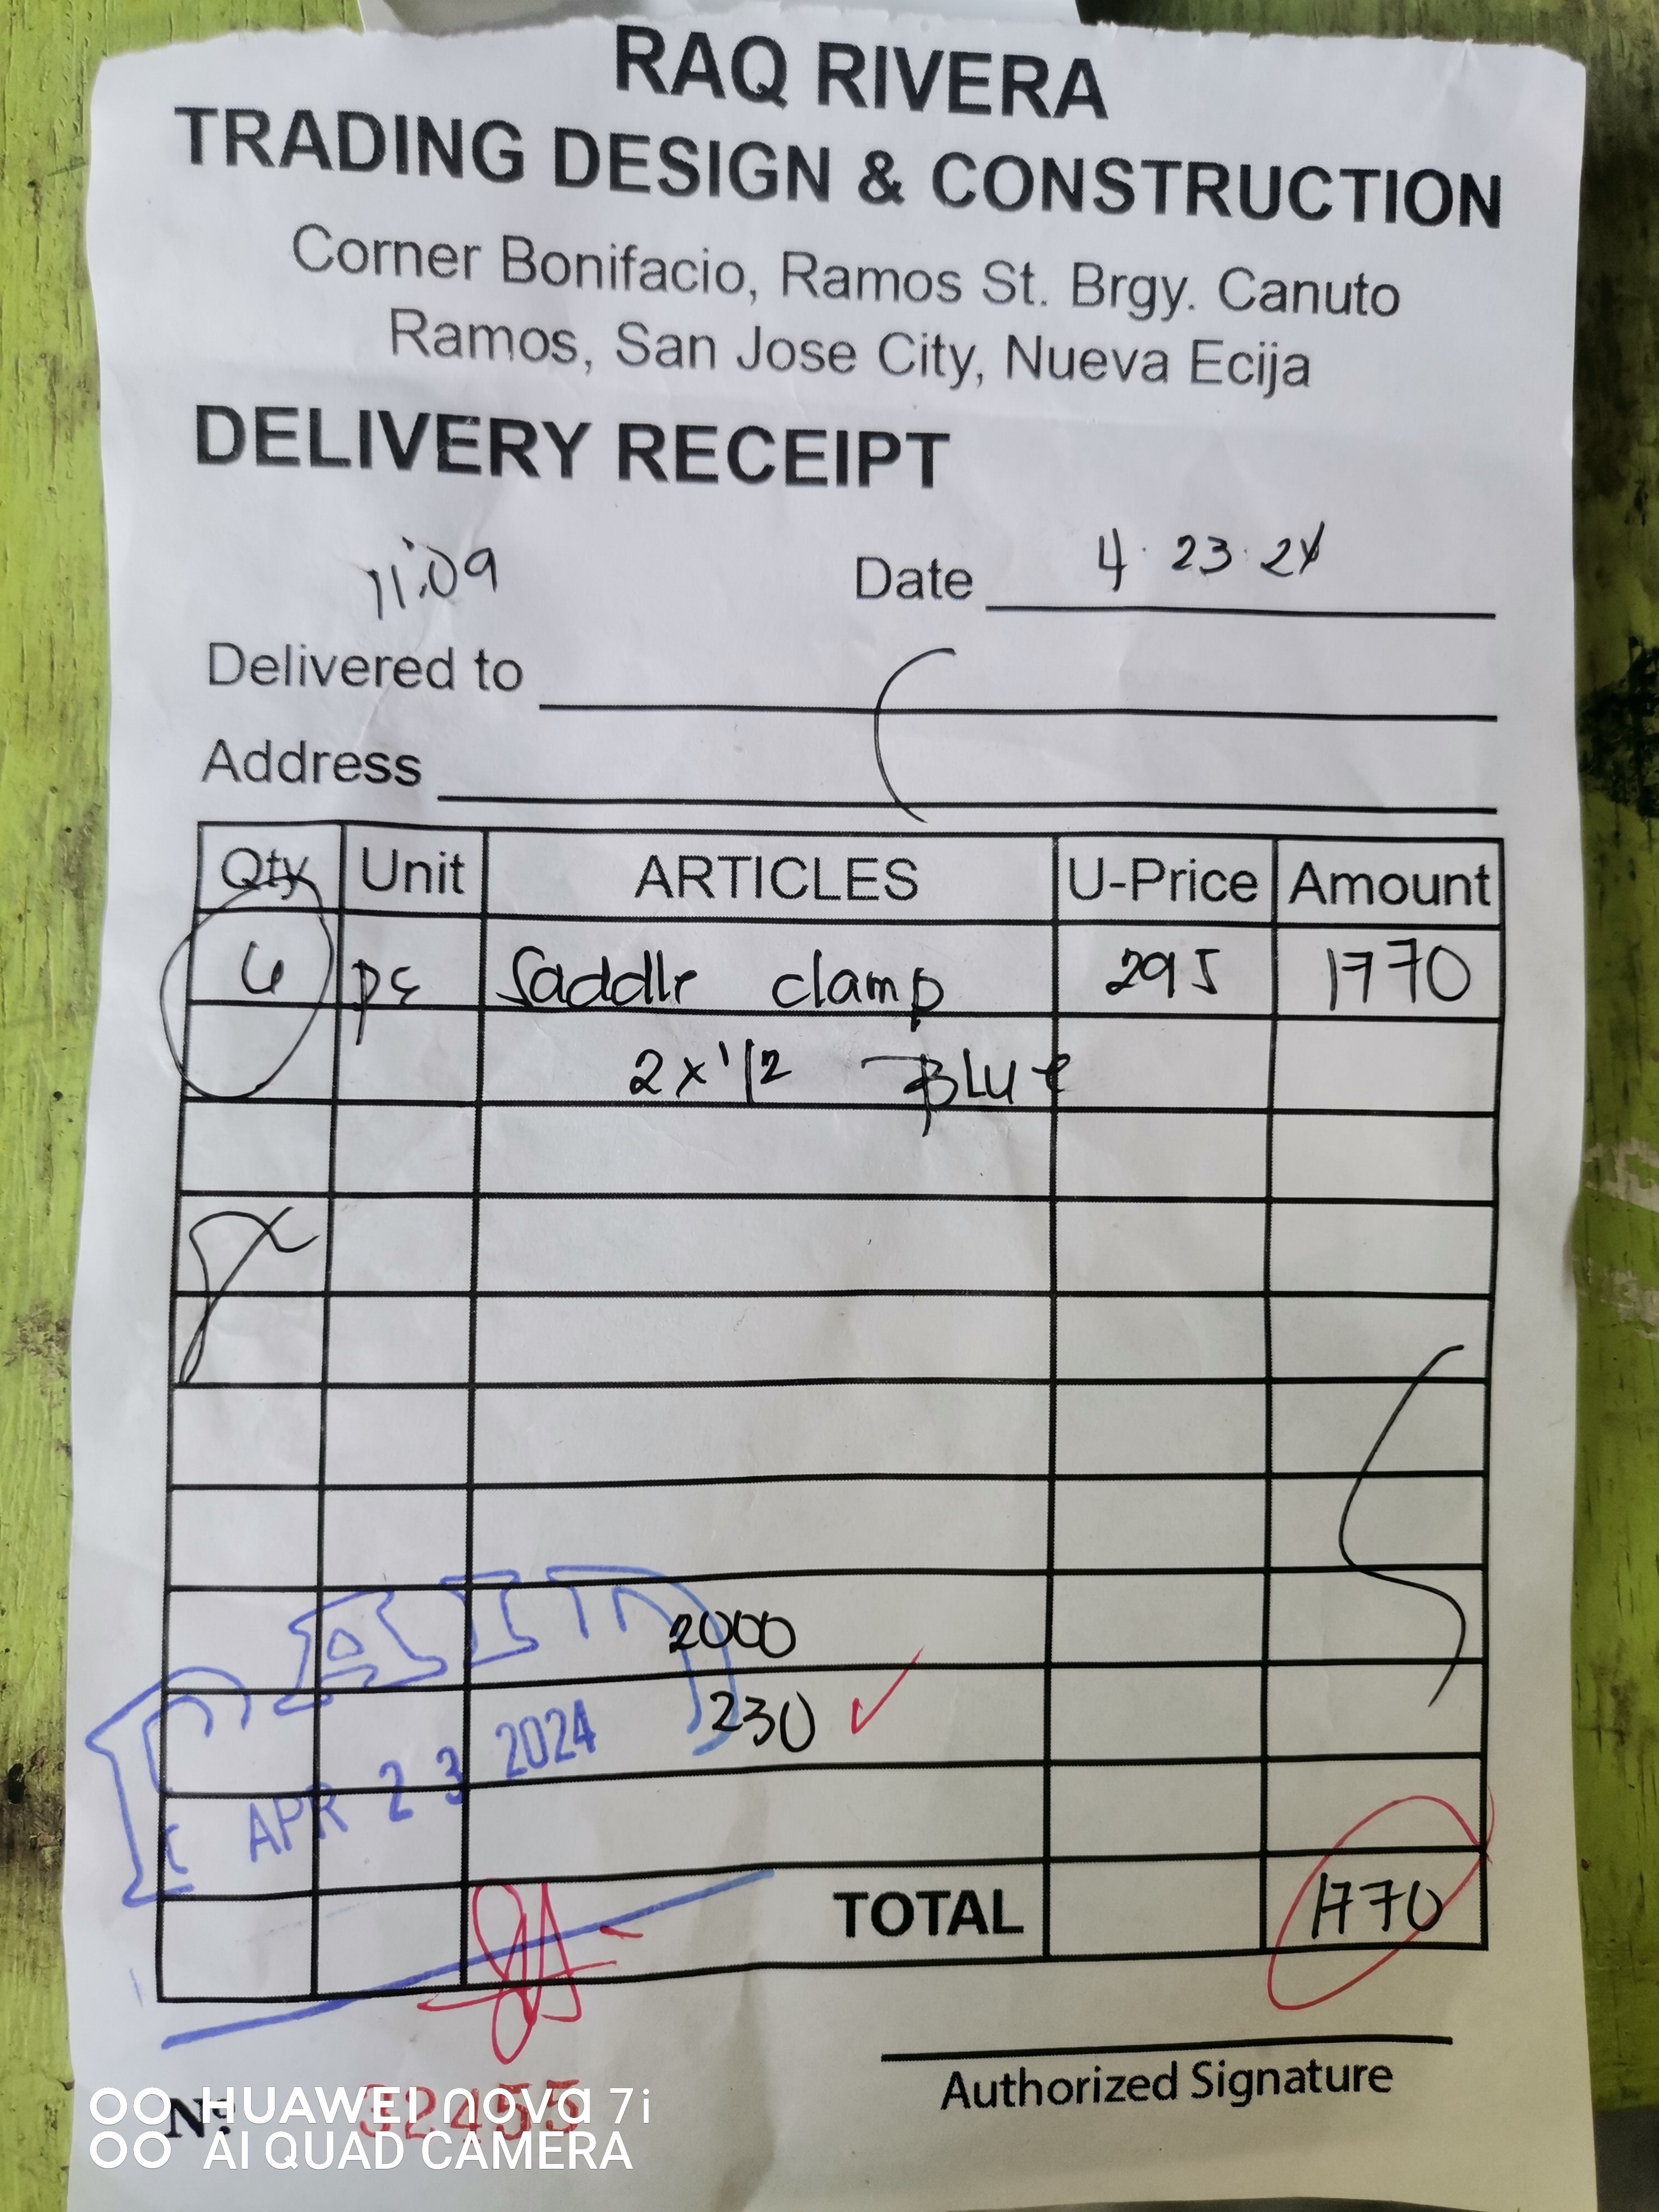 RAQ RIVERA
TRADING DESIGN & CONSTRUCTION
Corner Bonifacio, Ramos St. Brgy. Canuto
Ramos, San Jose City, Nueva Ecija
DELIVERY RECEIPT
11:09
Date 4 23 24
Delivered to
Address
Qty Unit ARTICLES U-Price Amount
6 pc Saddle clamp 295 1770
2 x 1/2 BLUe
2000
230
APR 23 2024
TOTAL 1770
Authorized Signature
Nº 32455
HUAWEI nova 7i
AI QUAD CAMERA